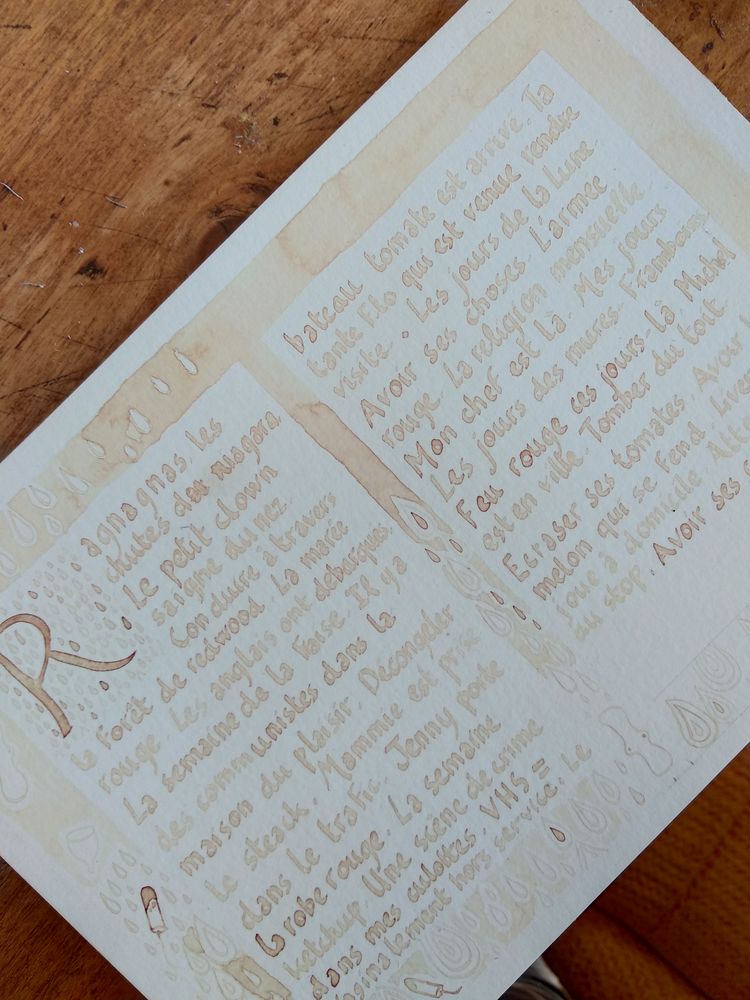 Ragnagnas, les
chutes du Niagara.
Le petit clown
saigne du nez.
Conduire à travers
la forêt de redwood. La marée
rouge. Les anglais ont débarqués.
La semaine de la fraise. Il y a
des communistes dans la
maison du plaisir. Décongeler
le steack. Mammie est prise
dans le trafic. Jenny porte
la robe rouge. La semaine
ketchup. Une scène de crime
dans mes culottes. VHS =
Vaginalement hors service. Le
bateau tomate est arrivé. Ta
tante Flo qui est venue rendre
visite. Les jours de la lune.
Avoir ses choses. L'armée
rouge. La religion mensuelle.
Mon chef est là. Mes jours
Les jours des mures-
Feu rouge ces jours-là. Michel
est en ville. Tomber du toit.
Ecraser ses tomates. Avoir
melon qui se fend.
joue à domicile.
du stop. Avoir ses